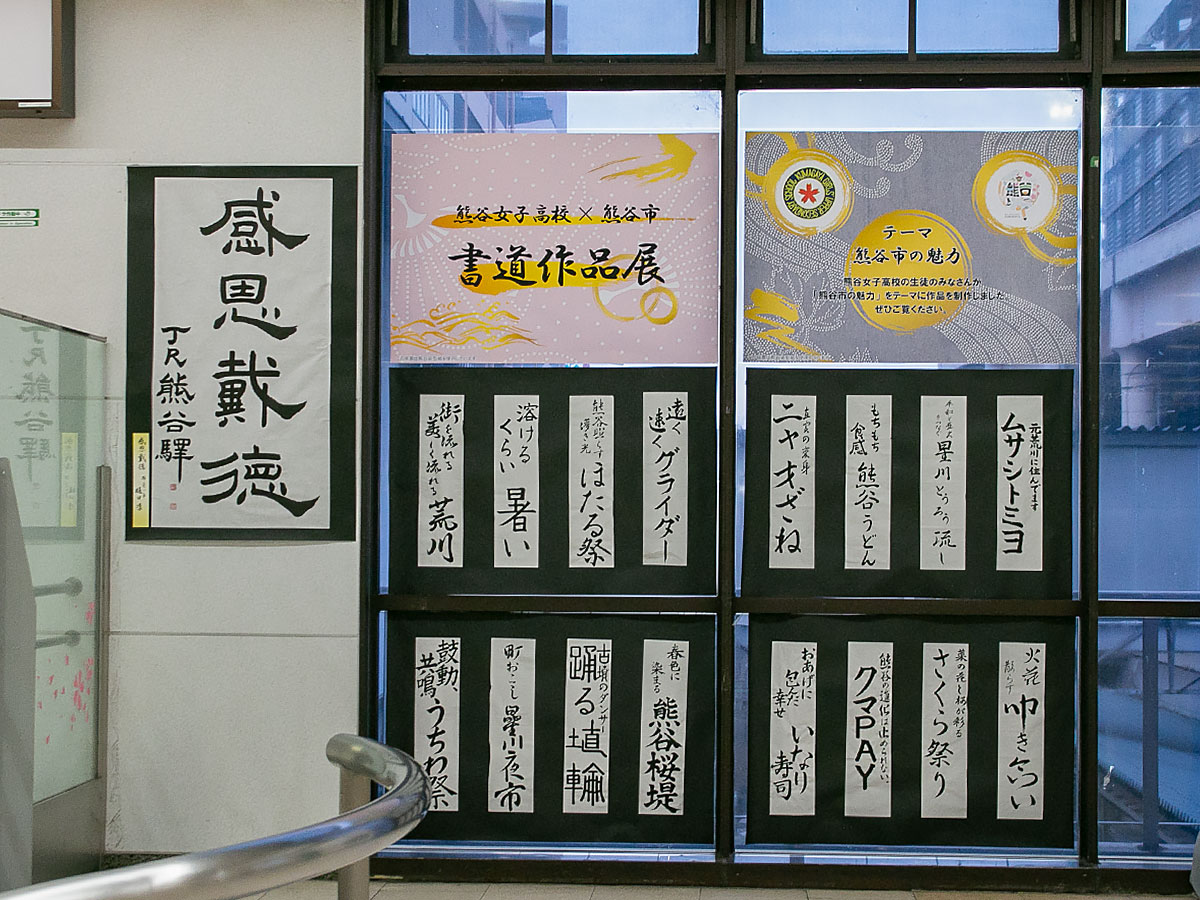 感恩戴徳
JR熊谷驛
熊谷女子高校×熊谷市
書道作品展
KUMAGAYA GIRLS UPPER SECONDARY SCHOOL
熊谷
テーマ
熊谷市の魅力
熊谷女子高校の生徒のみなさんが
「熊谷市の魅力」をテーマに作品を制作しました
ぜひご覧ください。
遠く
速くグライダー
熊谷照らす
ほたる祭
溶ける
くらい 暑い
街を流れる
美しく流れる 荒川
元荒川に住んでます
ムサシトミヨ
星川とうろう流し
もちもち
食感 熊谷うどん
真実の楽身
ニャオざね
春色に
染まる 熊谷桜堤
古墳のダンサー
踊る埴輪
町おこし 星川夜市
鼓動、
共鳴 うちわ祭
火花
散らす 叩き合い
菜の花と桜が彩る
さくら祭り
熊谷の進化は止められない。
クマPAY
おあげに
包んだ
幸せ いなり
寿司